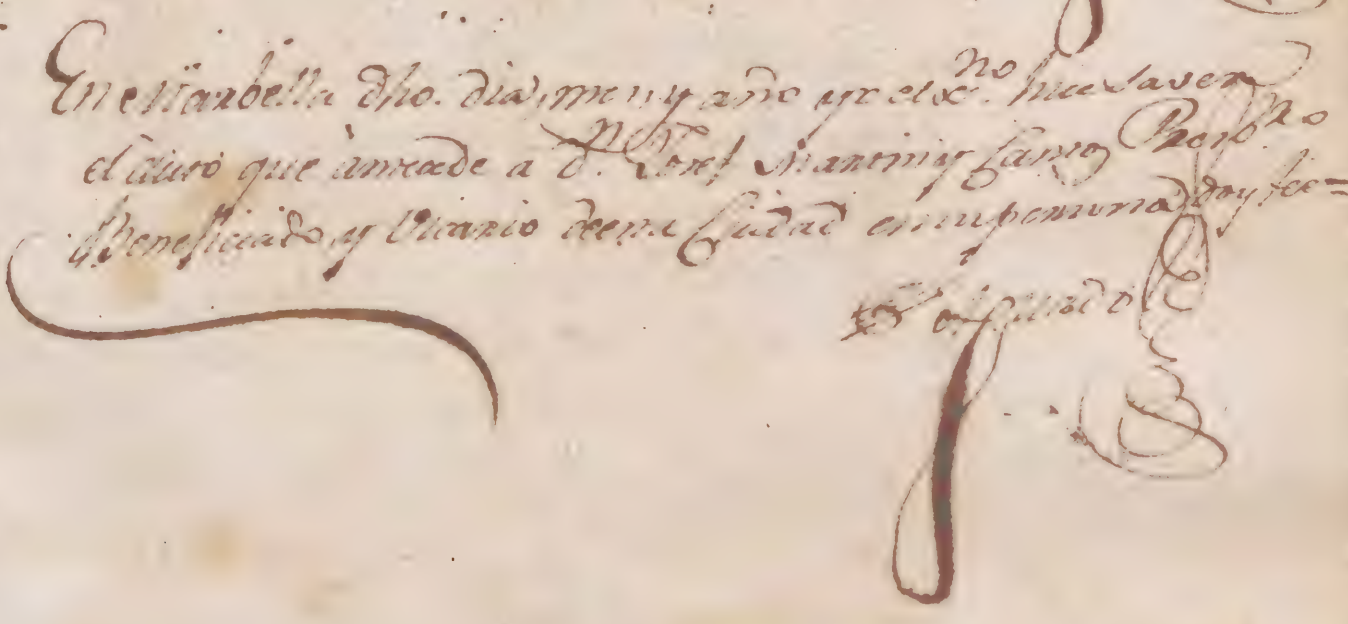 En Marbella dho. dia, mes y año yo el esc.no hice saver
el auto que antecede a D.n Josef Martin y Campos Presv.ro
Beneficiado y Vicario de esta Ciudad en su persona doy fee=